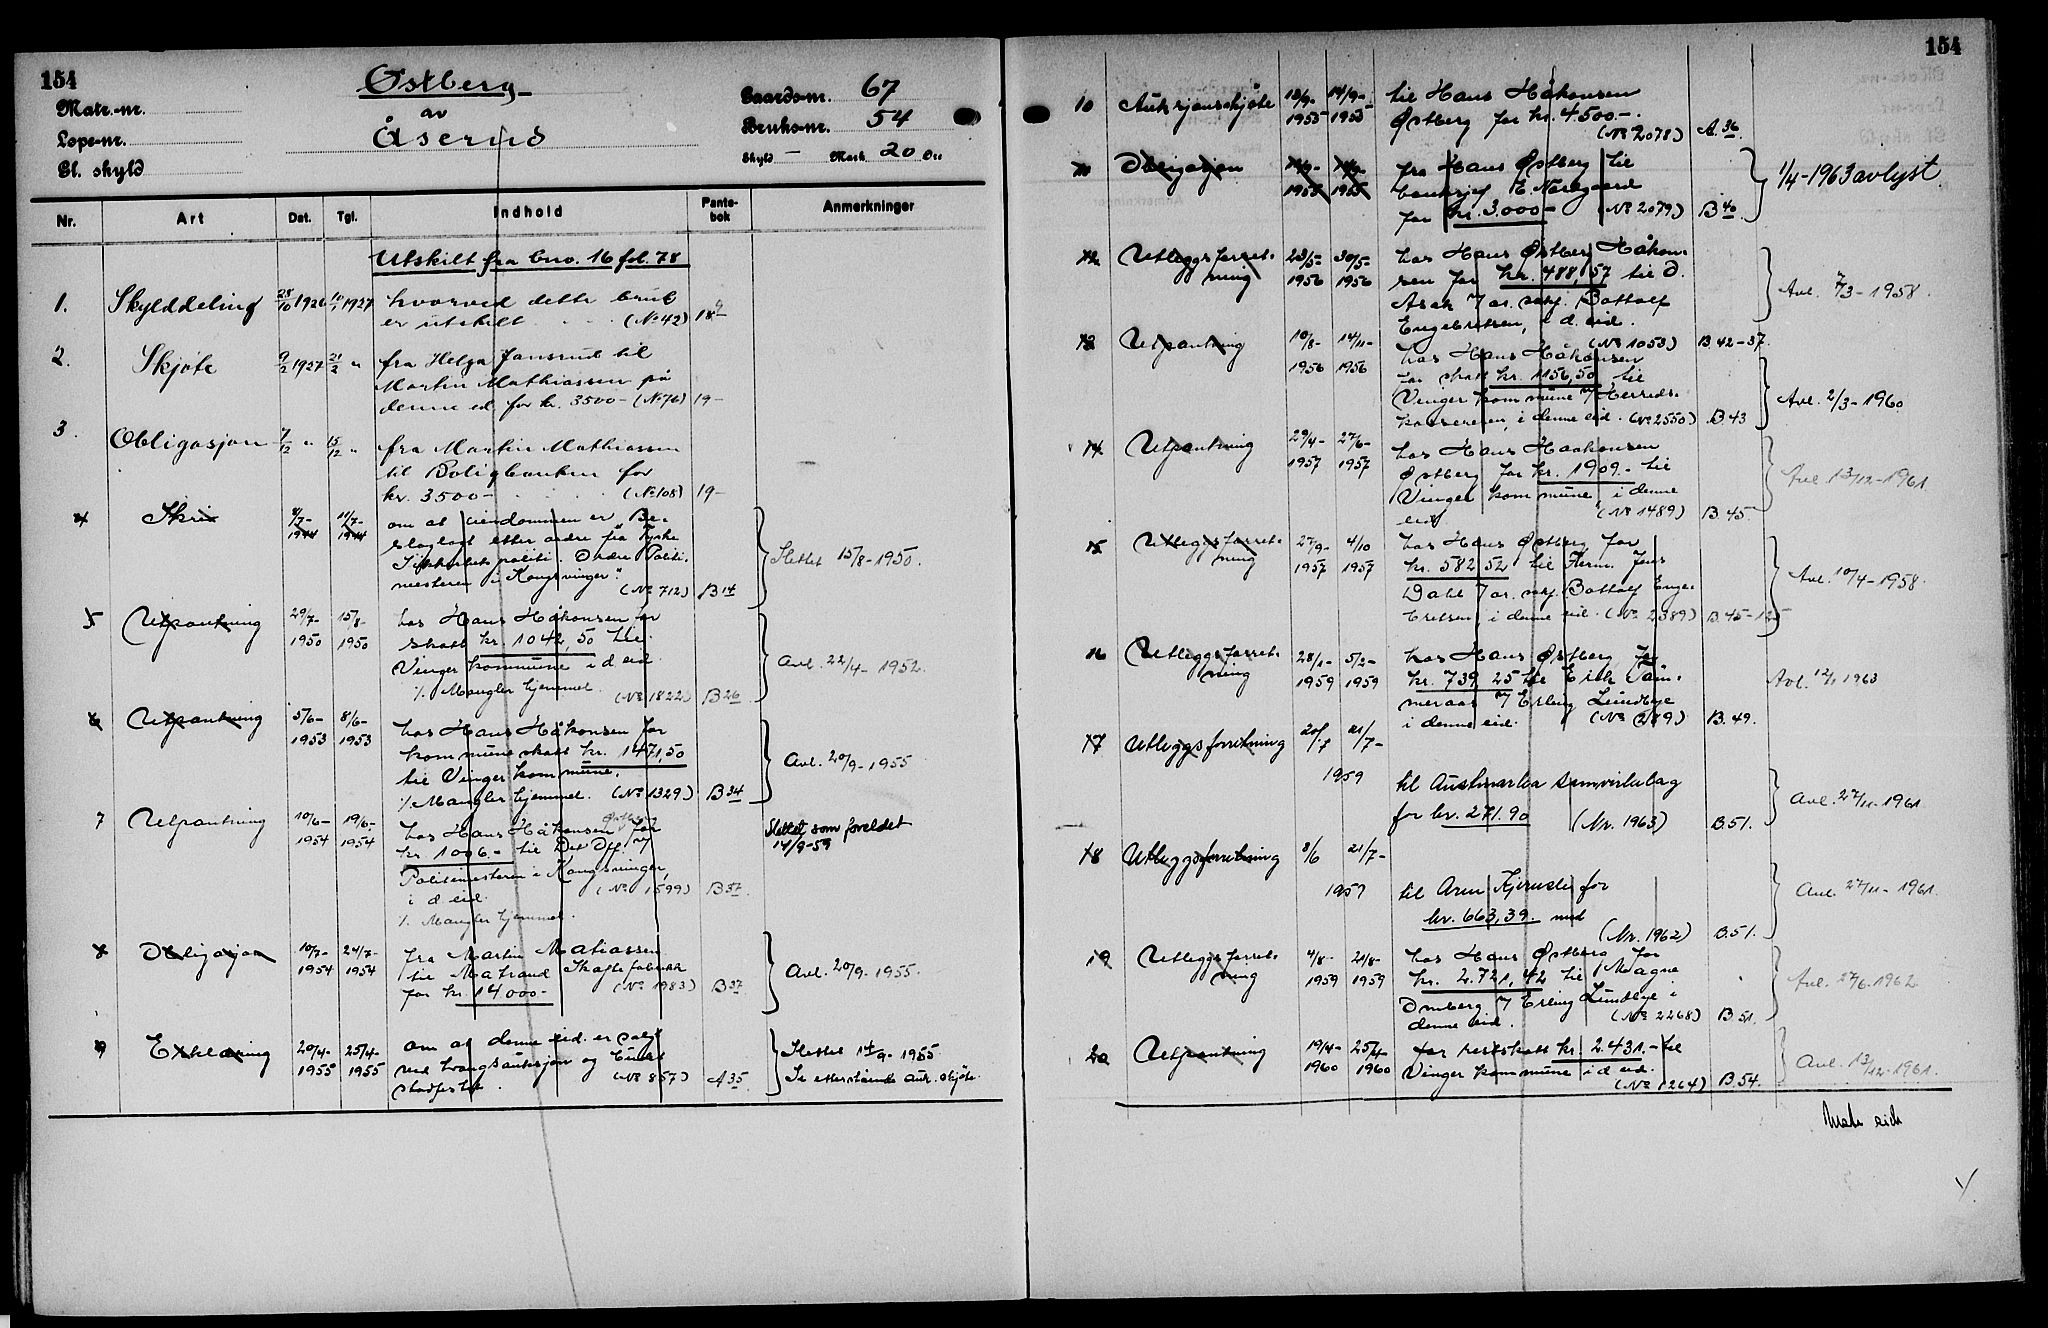 154
Østberg
av
Åserud
Matr.-nr.
Løpe-nr.
Gl. skyld
Gaards-nr. 67
Bruks-nr. 54
Skyld — Mark 20 Øre
Nr. Art Dat. Tgl. Indhold Pante-bok Anmerkninger
Utskilt fra bno. 16 fol. 78
1. Skylddeling 28/10 1926 1927 hvorved dette bruk
er utskilt (No 42) 18
2. Skjøte 9/2 1927 21/2 " fra Helga Jansrud til
Martin Mathiassen på
denne ed for kr. 3500- (No 76) 19-
3. Obligasjon 7/12 " 15/12 " fra Martin Mathiassen
til Boligbanken for
kr. 3500- (No 108) 19-
4 Skriv 8/7- 1944 11/7- 1944 om at eiendommen er Be-
slaglagt etter ordre fra Tyske
Sikkerhetspoliti. Ordre Politi-
mesteren i Kongsvinger". (No 712) B 14
Slettet 15/8-1950.
5 Utpantning 29/7- 1950 15/8- 1950 hos Hans Håkonsen for
skatt kr. 1042,50 til
Vinger kommune i d. eid.
%. Mangler hjemmel. (No 1822) B 26
Avl. 22/4-1952.
6 Utpantning 5/6- 1953 8/6- 1953 hos Hans Håkonsen for
kommuneskatt kr. 1471,50
til Vinger kommune.
%. Mangler hjemmel. (No 1329) B 34
Avl. 20/9-1955
7 Utpantning 10/6- 1954 19/6- 1954 hos Hans Håkonsen Østberg for
kr. 1006.- til Det Off. v/
Politimesteren i Kongsvinger,
i d. eid. (No 1599) B 37.
%. Mangler hjemmel.
Slettet som foreldet
14/9-59
8 Obligasjon 10/7- 1954 24/7- 1954 fra Martin Matiassen
til Matrand Skaftefabrikk
for kr. 14000- (No 1983) B 37
Avl. 20/9-1955.
9 Erklæring 20/4- 1955 25/4- 1955 om at denne eid. er solgt
ved tvangsauksjon og budet
stadfestet. (No 857) A 35
Slettet 14/9-1955
Se etterstående auk. skjøte.
154
10 Auksjonsskjøte 13/9- 1955 14/9- 1955 til Hans Håkonsen
Østberg for kr. 4500-.
(No 2078) A. 36
11 Obligasjon 14/9- 1955 14/9- 1955 fra Hans Østberg til
banksjef E. Norgaard
for kr. 3.000- (No 2079) B 40
1/4-1963 avlyst
12 Utleggsforret-
ning 23/5- 1956 30/5- 1956 hos Hans Østberg Håkon-
sen for kr. 488,57 til O.
Asak v/ o.r. sakf. Bottolf
Engebretsen, i d. eid.
(No 1053) B. 42-37.
Avl. 7/3-1958.
13 Utpantning 10/8- 1956 14/11- 1956 hos Hans Håkonsen
for skatt kr. 1156,50 til
Vinger kommune v/ Herreds-
kassereren, i denne eid. (No 2550) B. 43
Avl. 2/3-1960
14 Utpantning 29/4- 1957 27/6- 1957 hos Hans Haakonsen
Østberg for kr. 1909.- til
Vinger kommune, i denne
eid. (No 1489) B. 45.
Avl. 13/12-1961.
15 Utleggsforret-
ning 27/9- 1957 4/10 1957 hos Hans Østberg for
kr. 582 52 til Herm. Jens
Dahl v/ o.r. sakf. Bottolf Enge-
bretsen, i denne eid. (No 2389) B. 45-125
Avl. 10/4-1958.
16 Utleggsforret-
ning 28/1- 1959 5/2- 1959 hos Hans Østberg for
kr. 739 25 til Erik Tøm-
meraas v/ Erling Lundbye
i denne eid. (No 289) B. 49.
Avl. 12/1 1963
17 Utleggsforretning 20/7 21/7- 1959
til Austmarka samvirkelag
for kr. 271.90 (Nr. 1963) B. 51.
Avl. 27/11-1961
18 Utleggsforretning 8/6 21/7- 1959
til Arne Kjernsli for
kr. 663,39. (Nr. 1962) B. 51.
Avl. 27/11-1961.
19 Utleggsforret-
ning 4/8- 1959 21/8- 1959 hos Hans Østberg for
kr. 2.721,42 til Magne
Omberg v/ Erling Lundbye i
denne eid. (No 2268) B 51.
Avl. 27/6.1962
20 Utpantning 19/4- 1960 25/4- 1960 for restskatt kr. 2.431.- til
Vinger kommune i d. eid.
(No 1264) B. 54.
Avl. 13/12-1961.